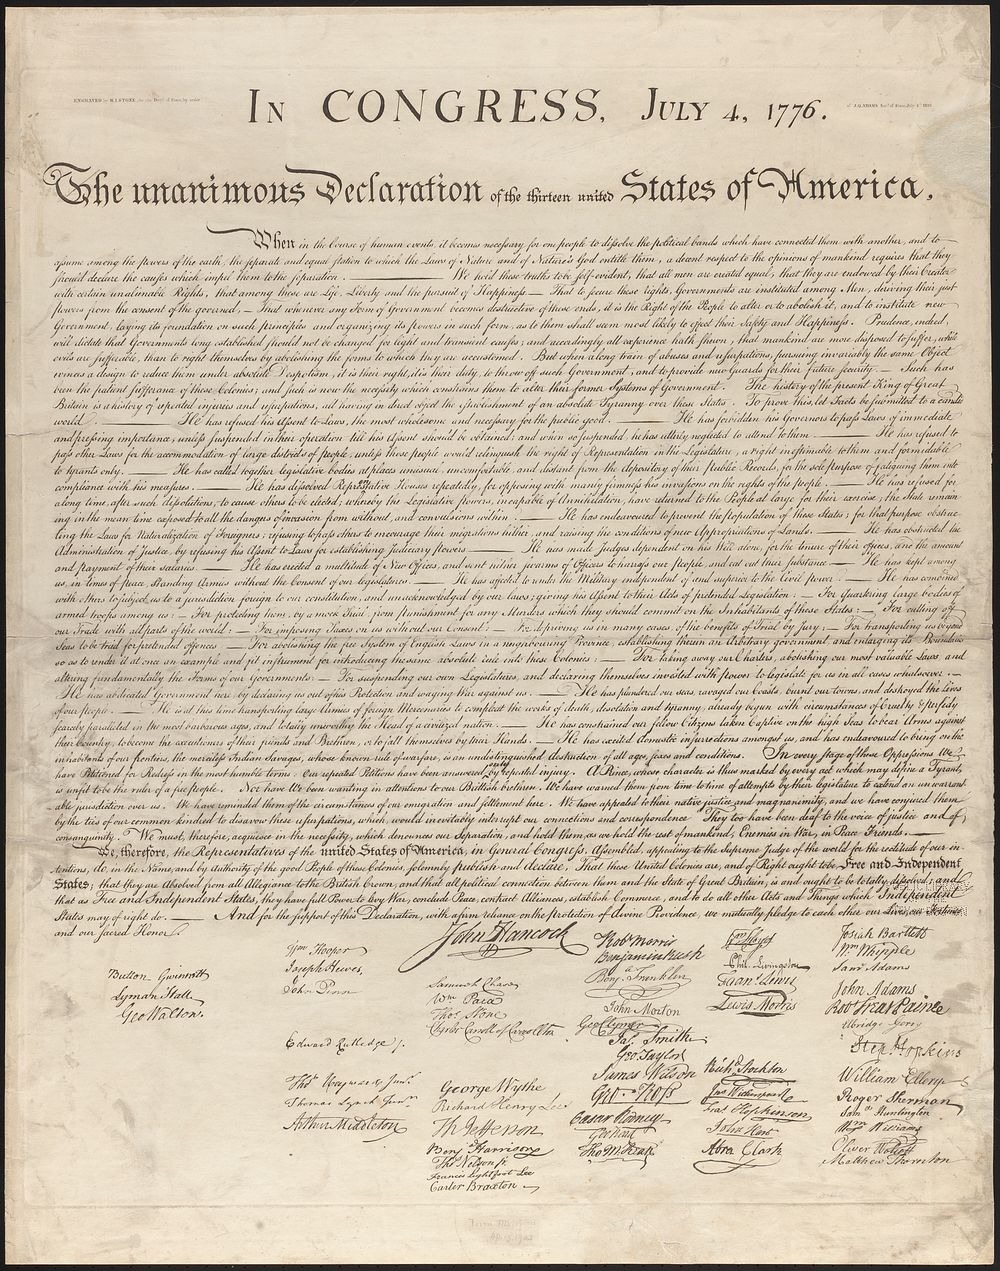 ENGRAVED by W.I.STONE, for the Dept. of State, by order
of J.Q.ADAMS Secy. of State, July 4th 1823.
IN CONGRESS, JULY 4, 1776.
The unanimous Declaration of the thirteen united States of America,
When in the Course of human events, it becomes necessary for one people to dissolve the political bands which have connected them with another, and to
assume among the powers of the earth, the separate and equal station to which the Laws of Nature and of Nature's God entitle them, a decent respect to the opinions of mankind requires that they
should declare the causes which impel them to the separation. — We hold these truths to be self-evident, that all men are created equal, that they are endowed by their Creator
with certain unalienable Rights, that among these are Life, Liberty and the pursuit of Happiness. — That to secure these rights, Governments are instituted among Men, deriving their just
powers from the consent of the governed, — That whenever any Form of Government becomes destructive of these ends, it is the Right of the People to alter or to abolish it, and to institute new
Government, laying its foundation on such principles and organizing its powers in such form, as to them shall seem most likely to effect their Safety and Happiness. Prudence, indeed,
will dictate that Governments long established should not be changed for light and transient causes; and accordingly all experience hath shewn, that mankind are more disposed to suffer, while
evils are sufferable, than to right themselves by abolishing the forms to which they are accustomed. But when a long train of abuses and usurpations, pursuing invariably the same Object
evinces a design to reduce them under absolute Despotism, it is their right, it is their duty, to throw off such Government, and to provide new Guards for their future security. — Such has
been the patient sufferance of these Colonies; and such is now the necessity which constrains them to alter their former Systems of Government. The history of the present King of Great
Britain is a history of repeated injuries and usurpations, all having in direct object the establishment of an absolute Tyranny over these States. To prove this, let Facts be submitted to a candid
world. — He has refused his Assent to Laws, the most wholesome and necessary for the public good. — He has forbidden his Governors to pass Laws of immediate
and pressing importance, unless suspended in their operation till his Assent should be obtained; and when so suspended, he has utterly neglected to attend to them. — He has refused to
pass other Laws for the accommodation of large districts of people, unless those people would relinquish the right of Representation in the Legislature, a right inestimable to them and formidable
to tyrants only. — He has called together legislative bodies at places unusual, uncomfortable, and distant from the depository of their Public Records, for the sole purpose of fatiguing them into
compliance with his measures. — He has dissolved Representative Houses repeatedly, for opposing with manly firmness his invasions on the rights of the people. — He has refused for
a long time, after such dissolutions, to cause others to be elected; whereby the Legislative Powers, incapable of Annihilation, have returned to the People at large for their exercise; the State remain-
ing in the mean time exposed to all the dangers of invasion from without, and convulsions within. — He has endeavoured to prevent the Population of these States; for that purpose obstruc-
ting the Laws for Naturalization of Foreigners; refusing to pass others to encourage their migrations hither, and raising the conditions of new Appropriations of Lands. — He has obstructed the
Administration of Justice, by refusing his Assent to Laws for establishing Judiciary powers. — He has made Judges dependent on his Will alone, for the tenure of their offices, and the amount
and payment of their salaries. — He has erected a multitude of New Offices, and sent hither swarms of Officers to harrass our people, and eat out their substance. — He has kept among
us, in times of peace, Standing Armies without the Consent of our legislatures. — He has affected to render the Military independent of and superior to the Civil power. — He has combined
with others to subject us to a jurisdiction foreign to our constitution, and unacknowledged by our laws; giving his Assent to their Acts of pretended Legislation: — For Quartering large bodies of
armed troops among us: — For protecting them, by a mock Trial, from punishment for any Murders which they should commit on the Inhabitants of these States: — For cutting off
our Trade with all parts of the world: — For imposing Taxes on us without our Consent: — For depriving us in many cases, of the benefits of Trial by jury: — For transporting us beyond
Seas to be tried for pretended offences — For abolishing the free System of English Laws in a neighbouring Province, establishing therein an Arbitrary government, and enlarging its Boundaries
so as to render it at once an example and fit instrument for introducing the same absolute rule into these Colonies: — For taking away our Charters, abolishing our most valuable Laws, and
altering fundamentally the Forms of our Governments: — For suspending our own Legislatures, and declaring themselves invested with power to legislate for us in all cases whatsoever. —
He has abdicated Government here, by declaring us out of his Protection and waging War against us. — He has plundered our seas, ravaged our Coasts, burnt our towns, and destroyed the Lives
of our people. — He is at this time transporting large Armies of foreign Mercenaries to compleat the works of death, desolation and tyranny, already begun with circumstances of Cruelty & perfidy
scarcely paralleled in the most barbarous ages, and totally unworthy the Head of a civilized nation. — He has constrained our fellow Citizens taken Captive on the high Seas to bear Arms against
their Country, to become the executioners of their friends and Brethren, or to fall themselves by their Hands. — He has excited domestic insurrections amongst us, and has endeavoured to bring on the
inhabitants of our frontiers, the merciless Indian Savages, whose known rule of warfare, is an undistinguished destruction of all ages, sexes and conditions. In every stage of these Oppressions We
have Petitioned for Redress in the most humble terms: Our repeated Petitions have been answered only by repeated injury. A Prince, whose character is thus marked by every act which may define a Tyrant,
is unfit to be the ruler of a free people. Nor have We been wanting in attentions to our Brittish brethren. We have warned them from time to time of attempts by their legislature to extend an unwarrant-
able jurisdiction over us. We have reminded them of the circumstances of our emigration and settlement here. We have appealed to their native justice and magnanimity, and we have conjured them
by the ties of our common kindred to disavow these usurpations, which, would inevitably interrupt our connections and correspondence. They too have been deaf to the voice of justice and of
consanguinity. We must, therefore, acquiesce in the necessity, which denounces our Separation, and hold them, as we hold the rest of mankind, Enemies in War, in Peace Friends. —
We, therefore, the Representatives of the united States of America, in General Congress, Assembled, appealing to the Supreme Judge of the world for the rectitude of our in-
tentions, do, in the Name, and by Authority of the good People of these Colonies, solemnly publish and declare, That these United Colonies are, and of Right ought to be Free and Independent
States; that they are Absolved from all Allegiance to the British Crown, and that all political connection between them and the State of Great Britain, is and ought to be totally dissolved; and
that as Free and Independent States, they have full Power to levy War, conclude Peace, contract Alliances, establish Commerce, and to do all other Acts and Things which Independent
States may of right do. — And for the support of this Declaration, with a firm reliance on the Protection of divine Providence, we mutually pledge to each other our Lives, our Fortunes
and our sacred Honor.
Button Gwinnett
Lyman Hall
Geo Walton.
Wm Hooper
Joseph Hewes,
John Penn
Edward Rutledge /.
Thos Heyward Junr.
Thomas Lynch Junr.
Arthur Middleton
John Hancock
Samuel Chase
Wm Paca
Thos Stone
Charles Carroll of Carrollton
George Wythe
Richard Henry Lee
Th Jefferson
Benj Harrison
Thos Nelson jr.
Francis Lightfoot Lee
Carter Braxton
Robt Morris
Benjamin Rush
Benj. Franklin
John Morton
Geo Clymer
Jas. Smith
Geo. Taylor
James Wilson
Geo. Ross
Caesar Rodney
Geo Read
Tho M:Kean
Wm Floyd
Phil. Livingston
Frans. Lewis
Lewis Morris
Richd. Stockton
Jno Witherspoon
Fras. Hopkinson
John Hart
Abra Clark
Josiah Bartlett
Wm. Whipple
Saml Adams
John Adams
Robt Treat Paine
Elbridge Gerry
Step. Hopkins
William Ellery
Roger Sherman
Saml Huntington
Wm. Williams
Oliver Wolcott
Matthew Thornton